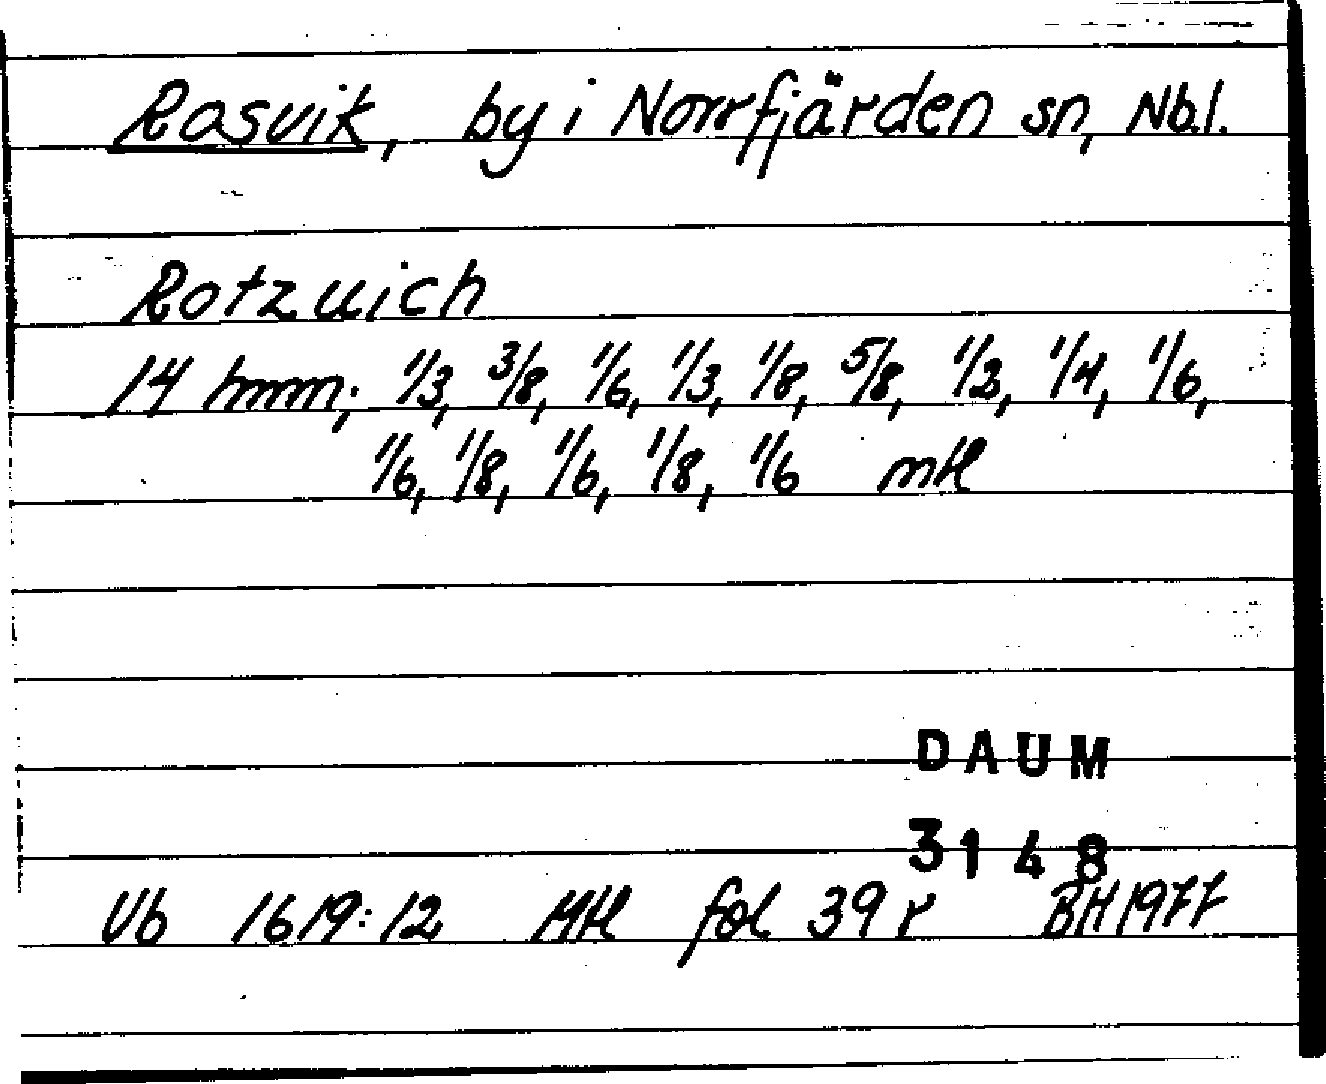 Rosvik, by i Norrfjärden sn, Nb.l.
Rotzuich
14 hmm; 1/3, 3/8, 1/6, 1/3, 1/8, 5/8, 1/2, 1/4, 1/6,
1/6, 1/8, 1/6, 1/8, 1/6 mtl
DAUM
3148
Vb 1619:12 Mtl fol 39 r BH 1977